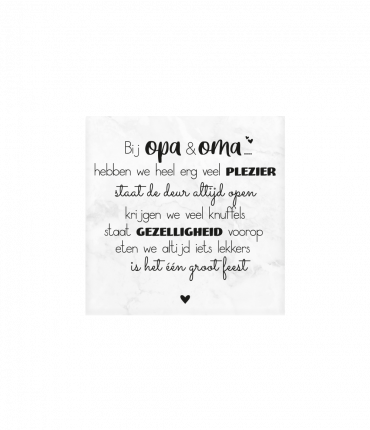 Bij opa & oma...
hebben we heel erg veel PLEZIER
staat de deur altijd open
krijgen we veel knuffels
staat GEZELLIGHEID voorop
eten we altijd iets lekkers
is het één groot feest